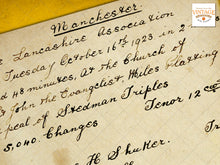 VINTAGE
Manchester.
Lancashire Association
Tuesday October 16th 1923 in 2
d 48 minutes, At the Church of
St John the Evangelist, Miles Platting
peal of Stedman Triples
5,040. Changes Tenor 12 cwt
H Shuker.